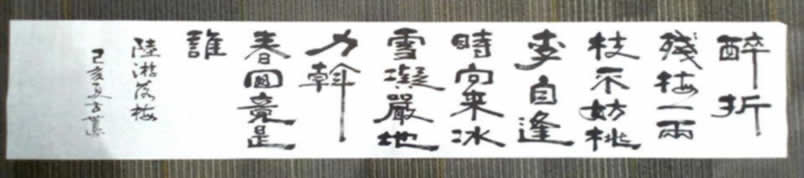 醉折
殘梅一兩
枝不妨桃
李自逢
時向来冰
雪凝嚴地
力斡
春回竟是
誰
陸游落梅
己亥夏